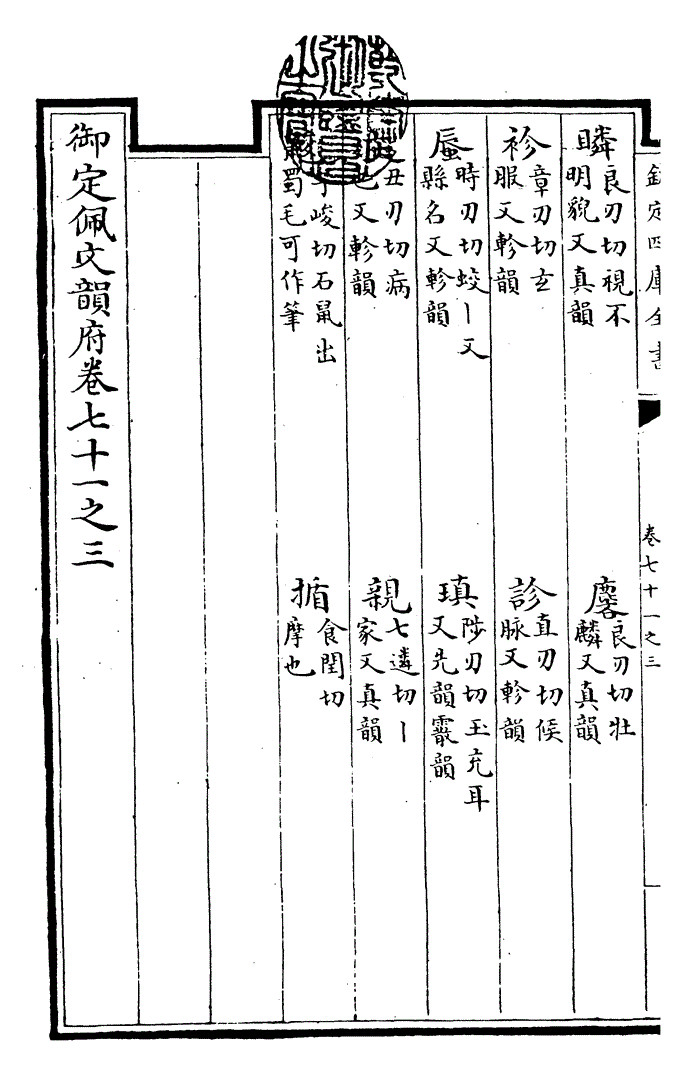 欽定四庫全書
卷七十一之三
瞵良刃切視不明貌又真韻
麐良刃切壯麟又真韻
袗章刃切玄服又軫韻
診直刃切候脉又軫韻
蜃時刃切蛟丨又縣名又軫韻
瑱陟刃切玉充耳又先韻霰韻
丑刃切病也又軫韻
親七遴切丨家又真韻
峻切石鼠出蜀毛可作筆
揗食閏切摩也
御定佩文韻府卷七十一之三